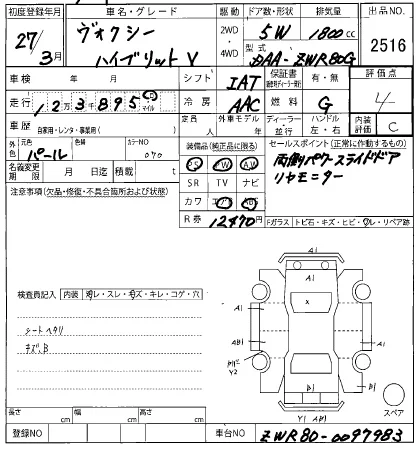 初度登録年月 車名・グレード 駆動 ドア数・形状 排気量 出品NO.
27/3月 ヴォクシー ハイブリット V 2WD・4WD 5W 1800cc 2516
型式 DAA-ZWR80G
車検 年 月 シフト IAT 保証書 有・無 評価点
走行 12万3千895 km マイル 冷房 AAC 燃料 G 4
車歴 自家用・レンタ・事業用( ) 定員 人 外車モデル年 ディーラー 並行 ハンドル 左・右 内装評価 C
外色 元色 パール 色替 カラーNO 070 装備品(純正品に限る) セールスポイント(正常に作動するもの)
名義変更期限 月 日迄 積載 t PS PW AW 両側パワースライドドア
注意事項(欠品・修復・不具合箇所および状態) SR TV ナビ リヤモニター
カワ エアB ABS
R券 12470円 Fガラス トビ石・キズ・ヒビ・ワレ・リペア跡
検査員記入 内装 ワレ・スレ・キズ・キレ・コゲ・穴
シートヘタリ
キズ、B
A1
A1
A1 X A1
AB1 AB1
B1 Y2
B1 B1
Y1 AB1
スペア
長さ cm 幅 cm 高さ cm
登録NO 車台NO ZWR80-0097983